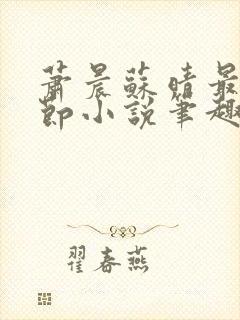 蕭晨蘇晴最
節小說筆趣
翟春燕